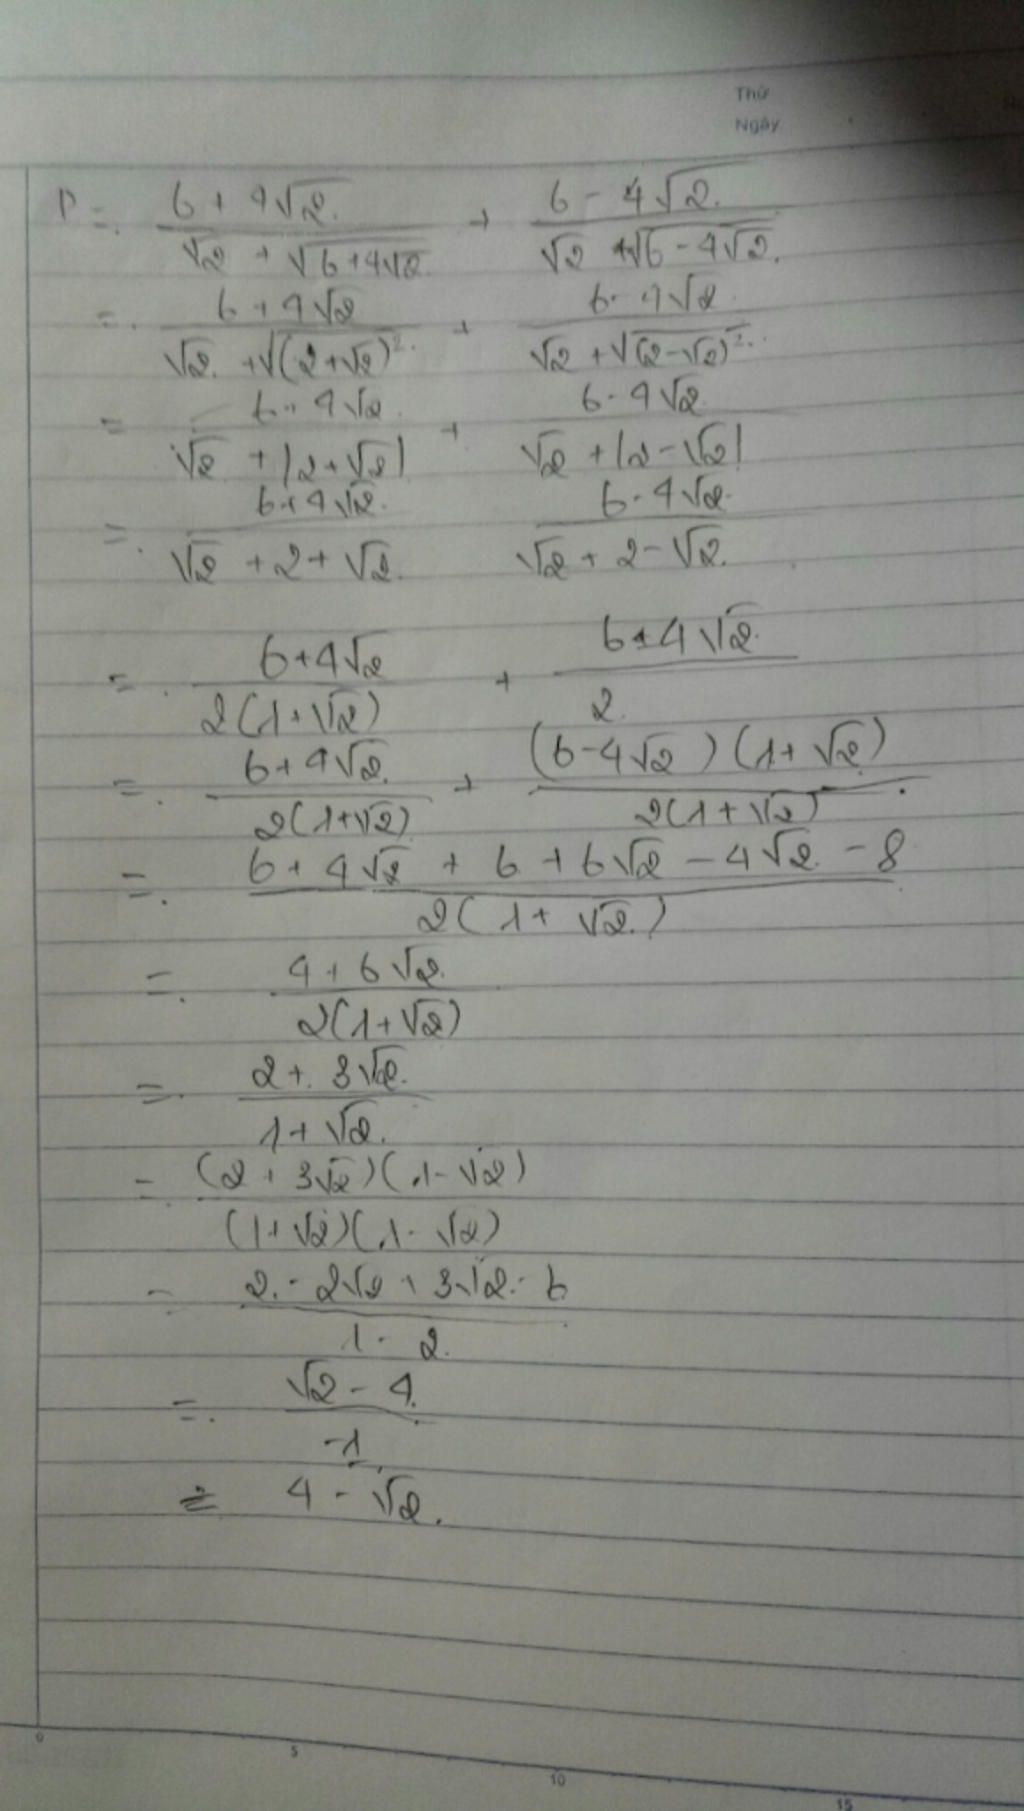 Thứ
Ngày
P = \frac{6+4\sqrt{2}}{\sqrt{2}+\sqrt{6+4\sqrt{2}}} + \frac{6-4\sqrt{2}}{\sqrt{2}+\sqrt{6-4\sqrt{2}}}
= \frac{6+4\sqrt{2}}{\sqrt{2}+\sqrt{(2+\sqrt{2})^2}} + \frac{6-4\sqrt{2}}{\sqrt{2}+\sqrt{(2-\sqrt{2})^2}}
= \frac{6+4\sqrt{2}}{\sqrt{2}+|2+\sqrt{2}|} + \frac{6-4\sqrt{2}}{\sqrt{2}+|2-\sqrt{2}|}
= \frac{6+4\sqrt{2}}{\sqrt{2}+2+\sqrt{2}} \frac{6-4\sqrt{2}}{\sqrt{2}+2-\sqrt{2}}
= \frac{6+4\sqrt{2}}{2(1+\sqrt{2})} + \frac{6-4\sqrt{2}}{2}
= \frac{6+4\sqrt{2}}{2(1+\sqrt{2})} + \frac{(6-4\sqrt{2})(1+\sqrt{2})}{2(1+\sqrt{2})}
= \frac{6+4\sqrt{2}+6+6\sqrt{2}-4\sqrt{2}-8}{2(1+\sqrt{2})}
= \frac{4+6\sqrt{2}}{2(1+\sqrt{2})}
= \frac{2+3\sqrt{2}}{1+\sqrt{2}}
= \frac{(2+3\sqrt{2})(1-\sqrt{2})}{(1+\sqrt{2})(1-\sqrt{2})}
= \frac{2-2\sqrt{2}+3\sqrt{2}-6}{1-2}
= \frac{\sqrt{2}-4}{-1}
= 4-\sqrt{2}.
0 5 10 15